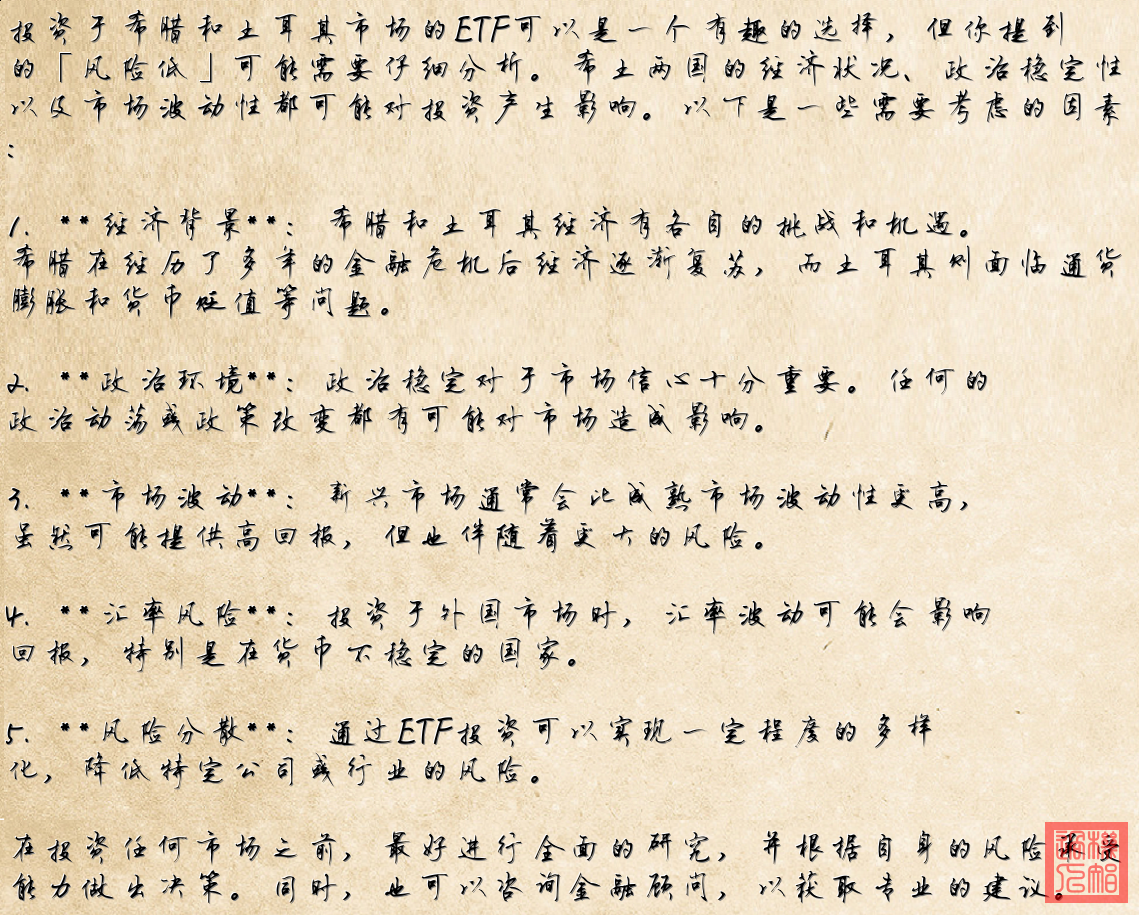 投资于希腊和土耳其市场的ETF可以是一个有趣的选择，但你提到
的「风险低」可能需要仔细分析。希土两国的经济状况、政治稳定性
以及市场波动性都可能对投资产生影响。以下是一些需要考虑的因素
：
1. **经济背景**：希腊和土耳其经济有各自的挑战和机遇。
希腊在经历了多年的金融危机后经济逐渐复苏，而土耳其则面临通货
膨胀和货币贬值等问题。
2. **政治环境**：政治稳定对于市场信心十分重要。任何的
政治动荡或政策改变都有可能对市场造成影响。
3. **市场波动**：新兴市场通常会比成熟市场波动性更高，
虽然可能提供高回报，但也伴随着更大的风险。
4. **汇率风险**：投资于外国市场时，汇率波动可能会影响
回报，特别是在货币不稳定的国家。
5. **风险分散**：通过ETF投资可以实现一定程度的多样
化，降低特定公司或行业的风险。
在投资任何市场之前，最好进行全面的研究，并根据自身的风险承受
能力做出决策。同时，也可以咨询金融顾问，以获取专业的建议。